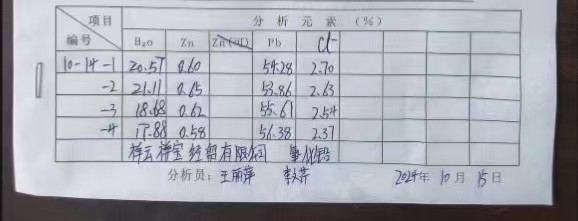 项目 分析元素(%)
编号 H₂O Zn Pb Cl-
10-14-1 20.57 0.60 54.28 2.70
-2 21.11 0.65 53.86 2.63
-3 18.68 0.62 55.61 2.54
-4 17.88 0.58 56.38 2.37
祥云祥宝经贸有限公司
分析员:王丽萍 2024年10月15日